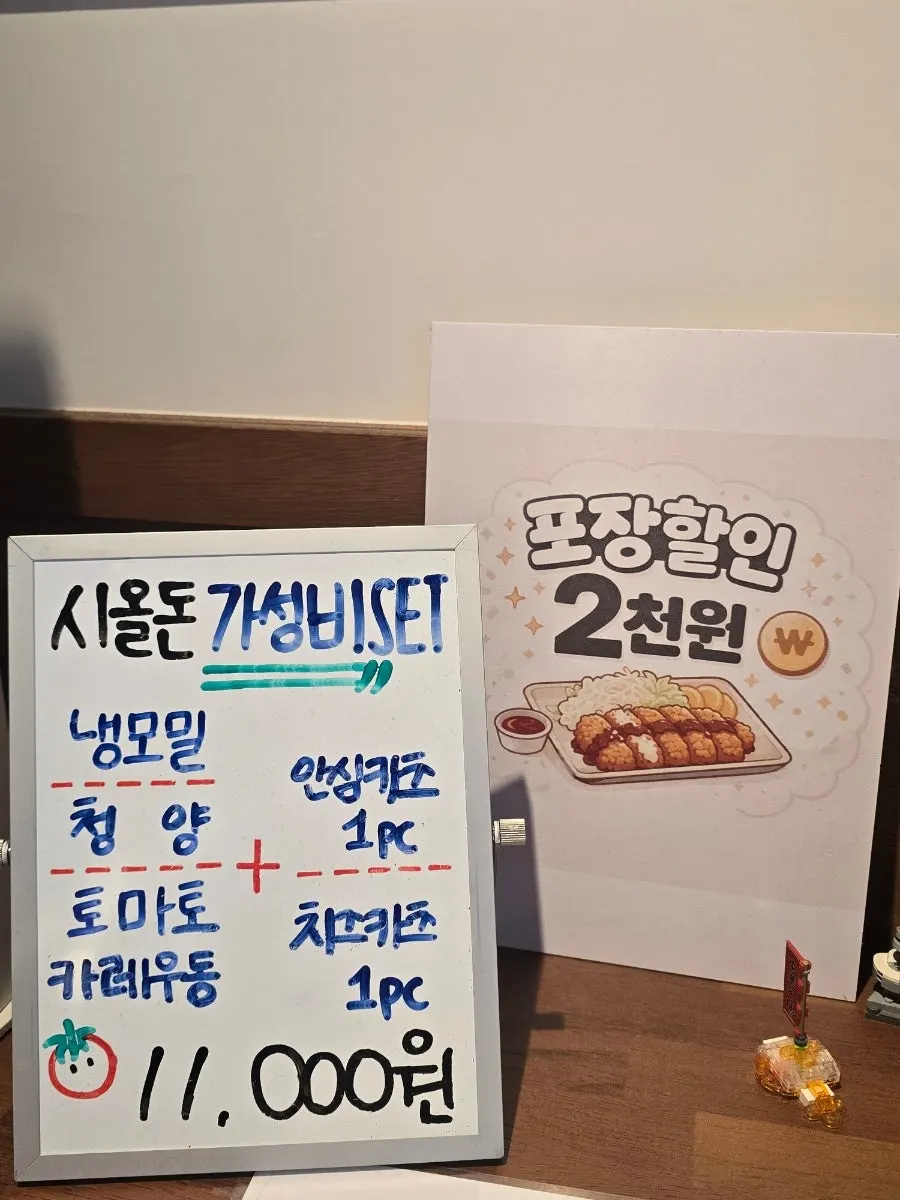 시올돈 가성비SET
냉모밀
청양
토마토
카레우동
+
안심카츠
1pc
치즈카츠
1pc
11,000원
포장할인
2천원
₩